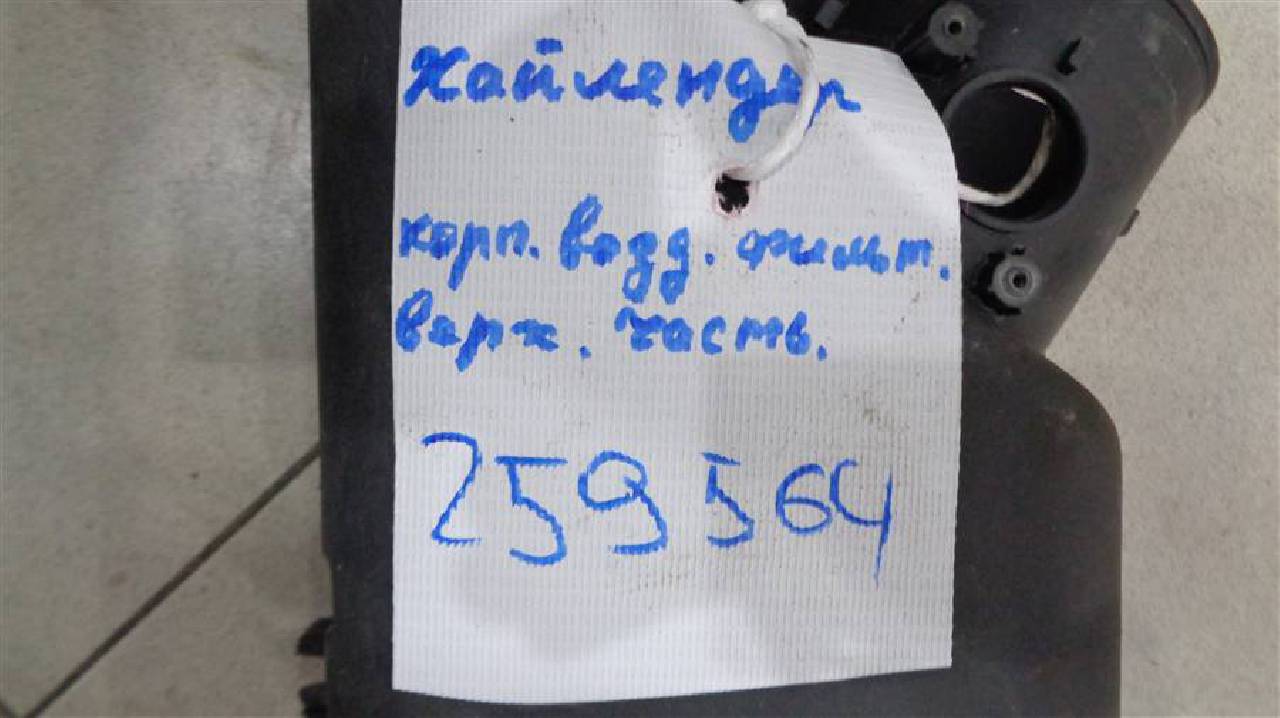 Хайлендер
корп. возд. фильт.
верх. часть.
259564